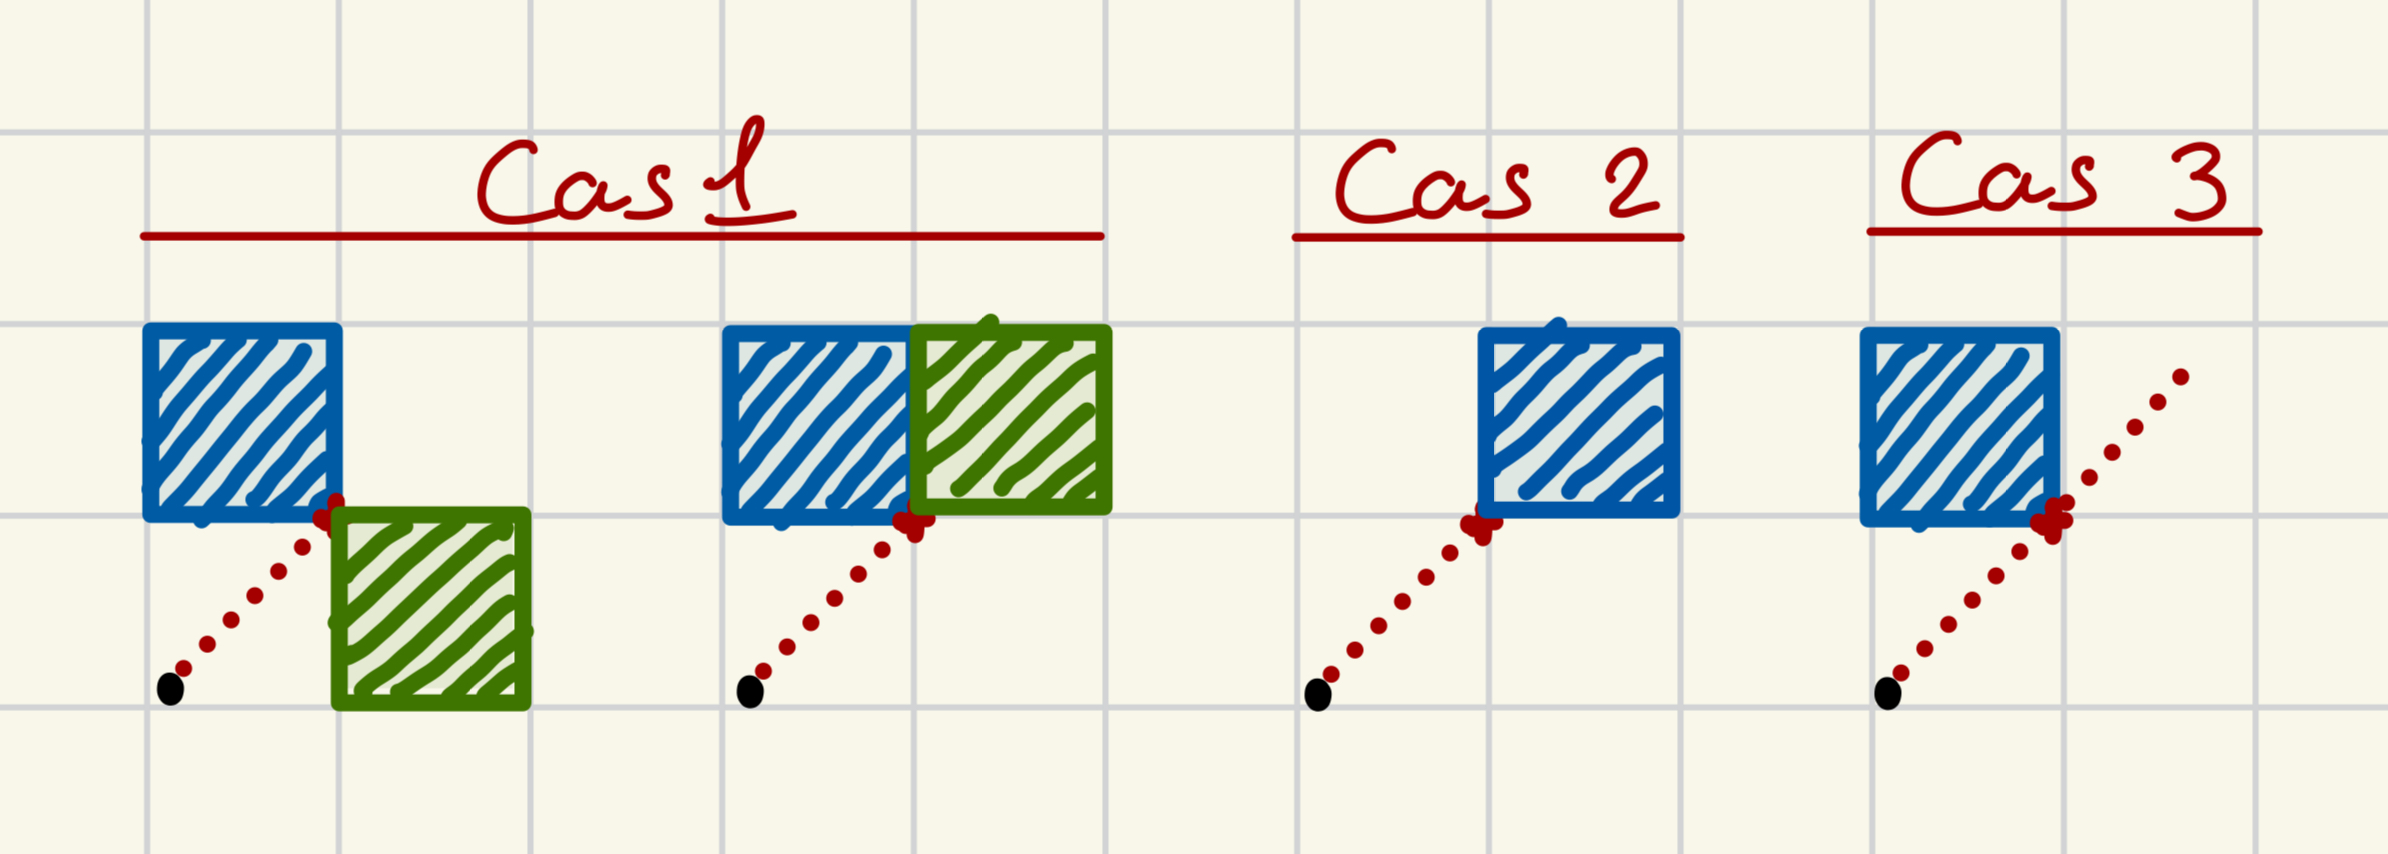 Cas 1
Cas 2
Cas 3